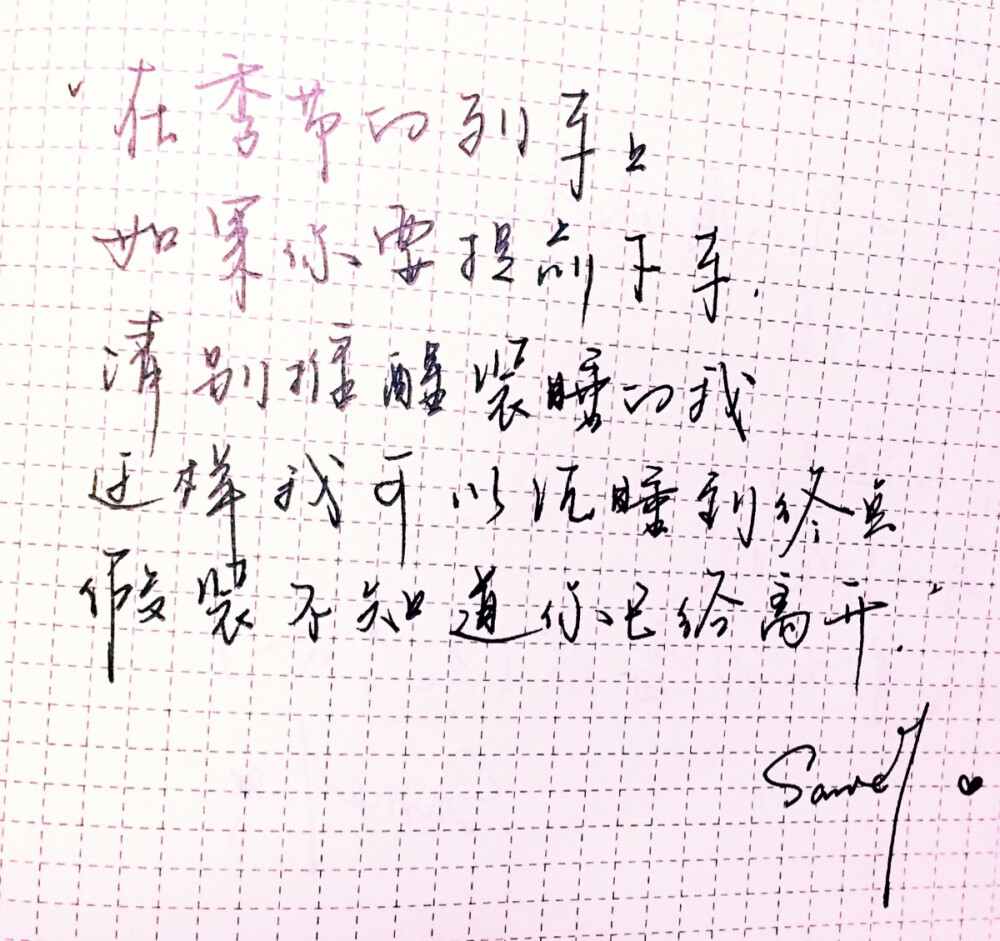 “在季节的列车上
如果你要提前下车.
请别推醒装睡的我
这样我可以沉睡到终点
假装不知道你已经离开.”